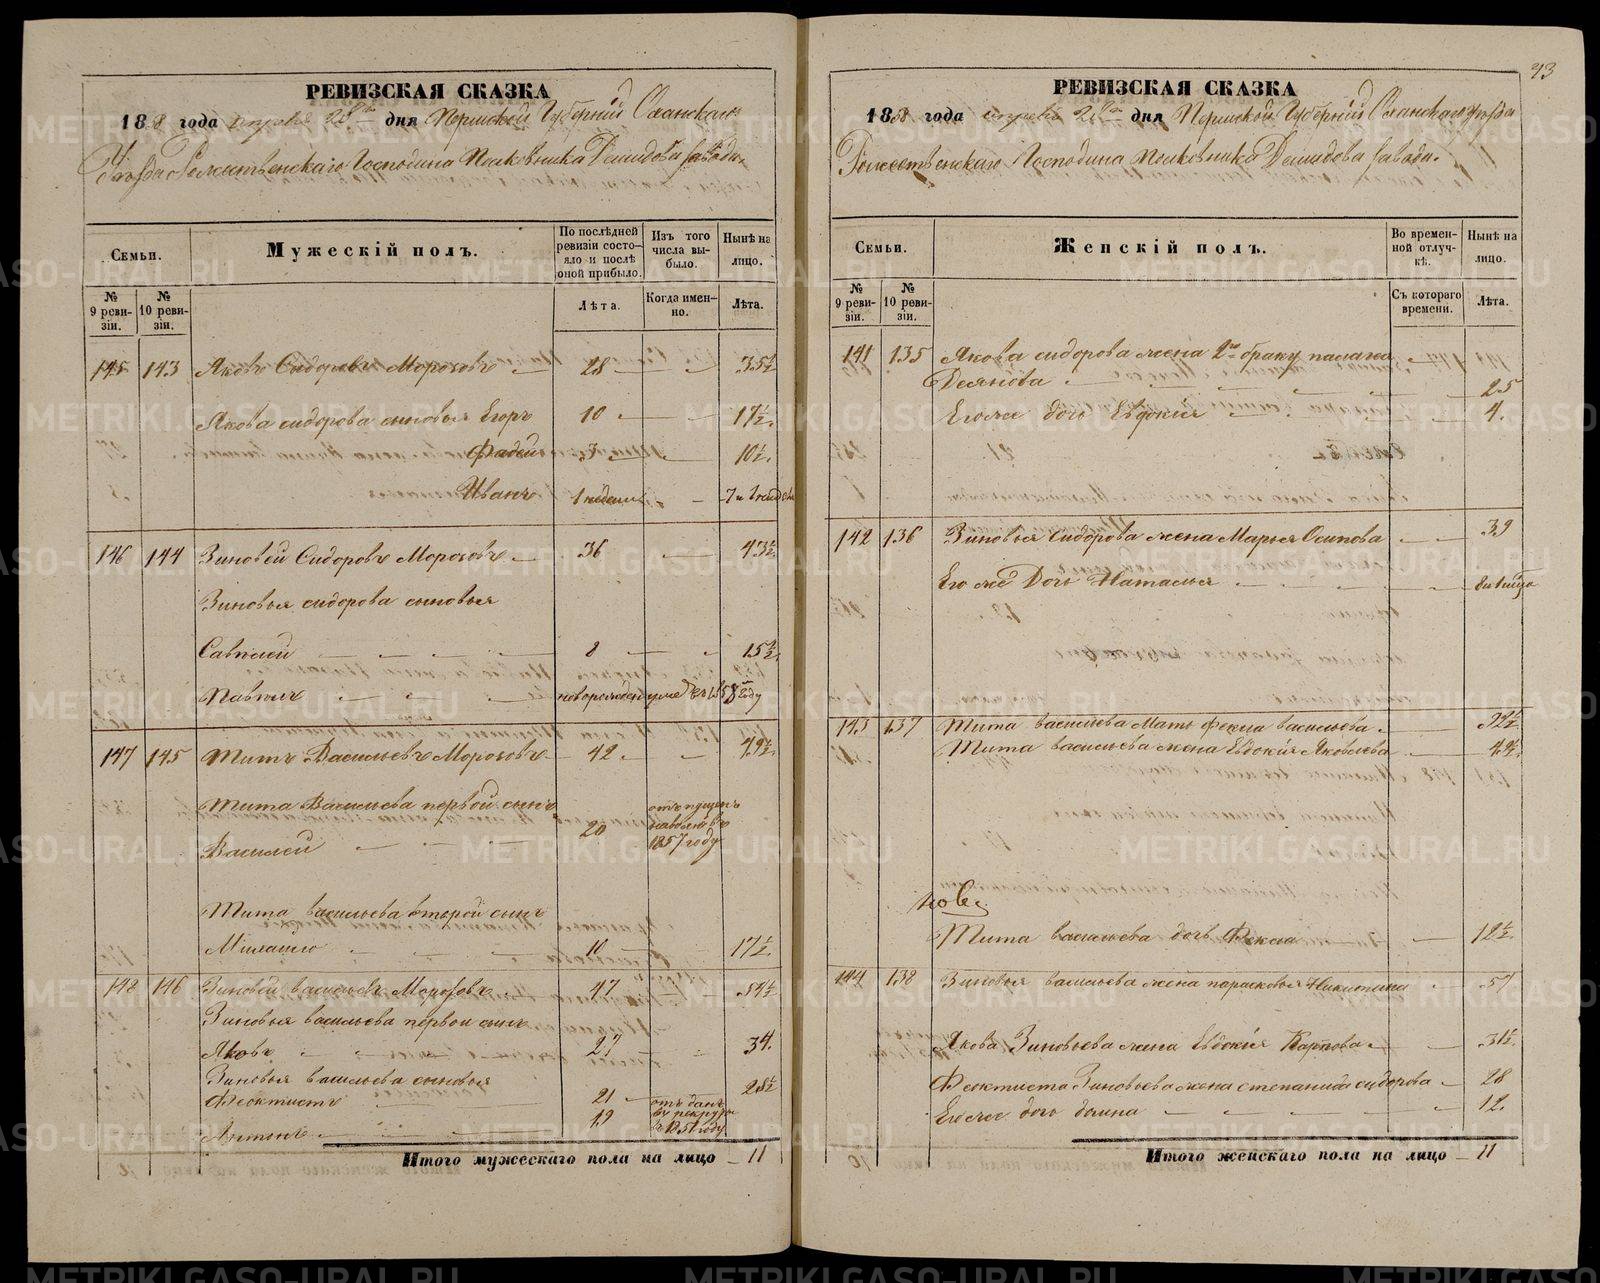 РЕВИЗСКАЯ СКАЗКА
1858 года апреля дня Пермской Губернии Оханскаго
Уезда Рожественскаго Господина Полковника Демидова завода.
Семьи.
Мужескiй полъ.
По послѣдней ревизiи состояло и послѣ оной прибыло.
Изъ того числа выбыло.
Нынѣ на лицо.
№ 9 ревизiи.
№ 10 ревизiи.
Лѣта.
Когда именно.
Лѣта.
145 143 Яковъ Сидоровъ Морозовъ 28 35½
Якова сидорова сыновья Егоръ 10 17½
Фадей 3 10½
Иванъ 1 недели
146 144 Зиновей Сидоровъ Морозовъ 36 43½
Зиновья сидорова сыновья
Савватей 8 15½
Павелъ новорожден умре въ 1858 году
147 145 Титъ Васильевъ Морозовъ 42 49½
Тита Васильева первой сынъ
Василей 20 отъ пущенъ на волю въ 1857 году
Тита васильева второй сынъ
Михайло 10 17½
148 146 Зиновей васильевъ Морозовъ 47 54½
Зиновья васильева первой сынъ
Яковъ 27 34.
Зиновья васильева сыновья
Феоктистъ 21 28½
Антонъ 19 отъ данъ въ рекруты въ 1851 году
Итого мужескаго пола на лицо 11
93
РЕВИЗСКАЯ СКАЗКА
1858 года апреля дня Пермской Губернии Оханскаго уезда
Рожественскаго Господина Полковника Демидова завода.
Семьи.
Женскiй полъ.
Во временной отлучкѣ.
Нынѣ на лицо.
№ 9 ревизiи.
№ 10 ревизiи.
Съ котораго времени.
Лѣта.
141 135 Якова сидорова жена 2го браку палагея
Демянова 25
Его же дочь Евдокия 4.
142 136 Зиновья Сидорова жена Марья Осипова 39
Его же Дочь Наталья девица
143 137 Тита васильева Мать Фекла васильева
Тита васильева жена Евдокия Яковлева 49½
Тита васильева дочь Фекла 12½
144 138 Зиновья васильева жена парасковья Никитина 57
Якова Зиновьева жена Евдокия Карпова 31½
Феоктиста Зиновьева жена степанида сидорова 28
Его же дочь домна 12.
Итого женскаго пола на лицо 11